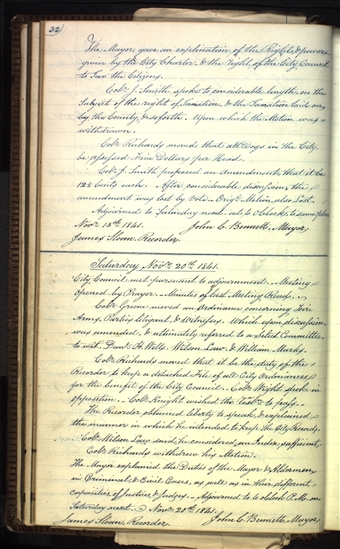 32
The Mayor gave an explination of the Rights & powers
given by the City Charter, & the right of the City Council
to Tax the Citizens.
Col. J. Smith spoke to considerable length, on the
Subject of the right of Taxation, & the Taxation laid on
by the County, & so forth. Upon which the Motion was
withdrawn.
Col. Richards moved that all Dogs in the City,
be assessed Five Dollars per Head.
Col. J. Smith proposed an Amendment, that it be
12½ Cents each. After considerable discussion, the
amendment was lost by Vote. Orig. Motion, also Lost.
Adjourned to Saturday next, at 6 o'Clock,
Nov. 13th 1841. John C. Bennett, Mayor,
James Sloan, Recorder.
Saturday Nov. 20th 1841.
City Council met pursuant to adjournment. Meeting
opened by Prayer. Minutes of last Meeting Read.
Col. Greene moved an Ordinance concerning Fire
Arms, Parties Litigant, & Witnesses. Which upon discussion
was amended, & ultimately referred to a Select Committee
to wit. Danl. H. Wells, Wilson Law, & William Marks.
Col. Richards moved that it be the duty of the
Recorder to keep a detached File of all City Ordinances
for the benefit of the City Council. Col. Wright spoke in
opposition. Col. Knight wished the to pass.
The Recorder obtained liberty to speak, & explained
the manner in which he intended to keep the City Records.
Col. Wilson Law said he considered an Index, sufficient,
Col. Richards withdrew his Motion.
The Mayor explained the Duties of the Mayor & Aldermen,
in Criminal, & Civil Cases, as well as in their different
capacities of Justices & Judges. Adjourned to 6 o'Clock P.M. on
Saturday next. Nov. 20th 1841.
James Sloan, Recorder. John C. Bennett, Mayor,